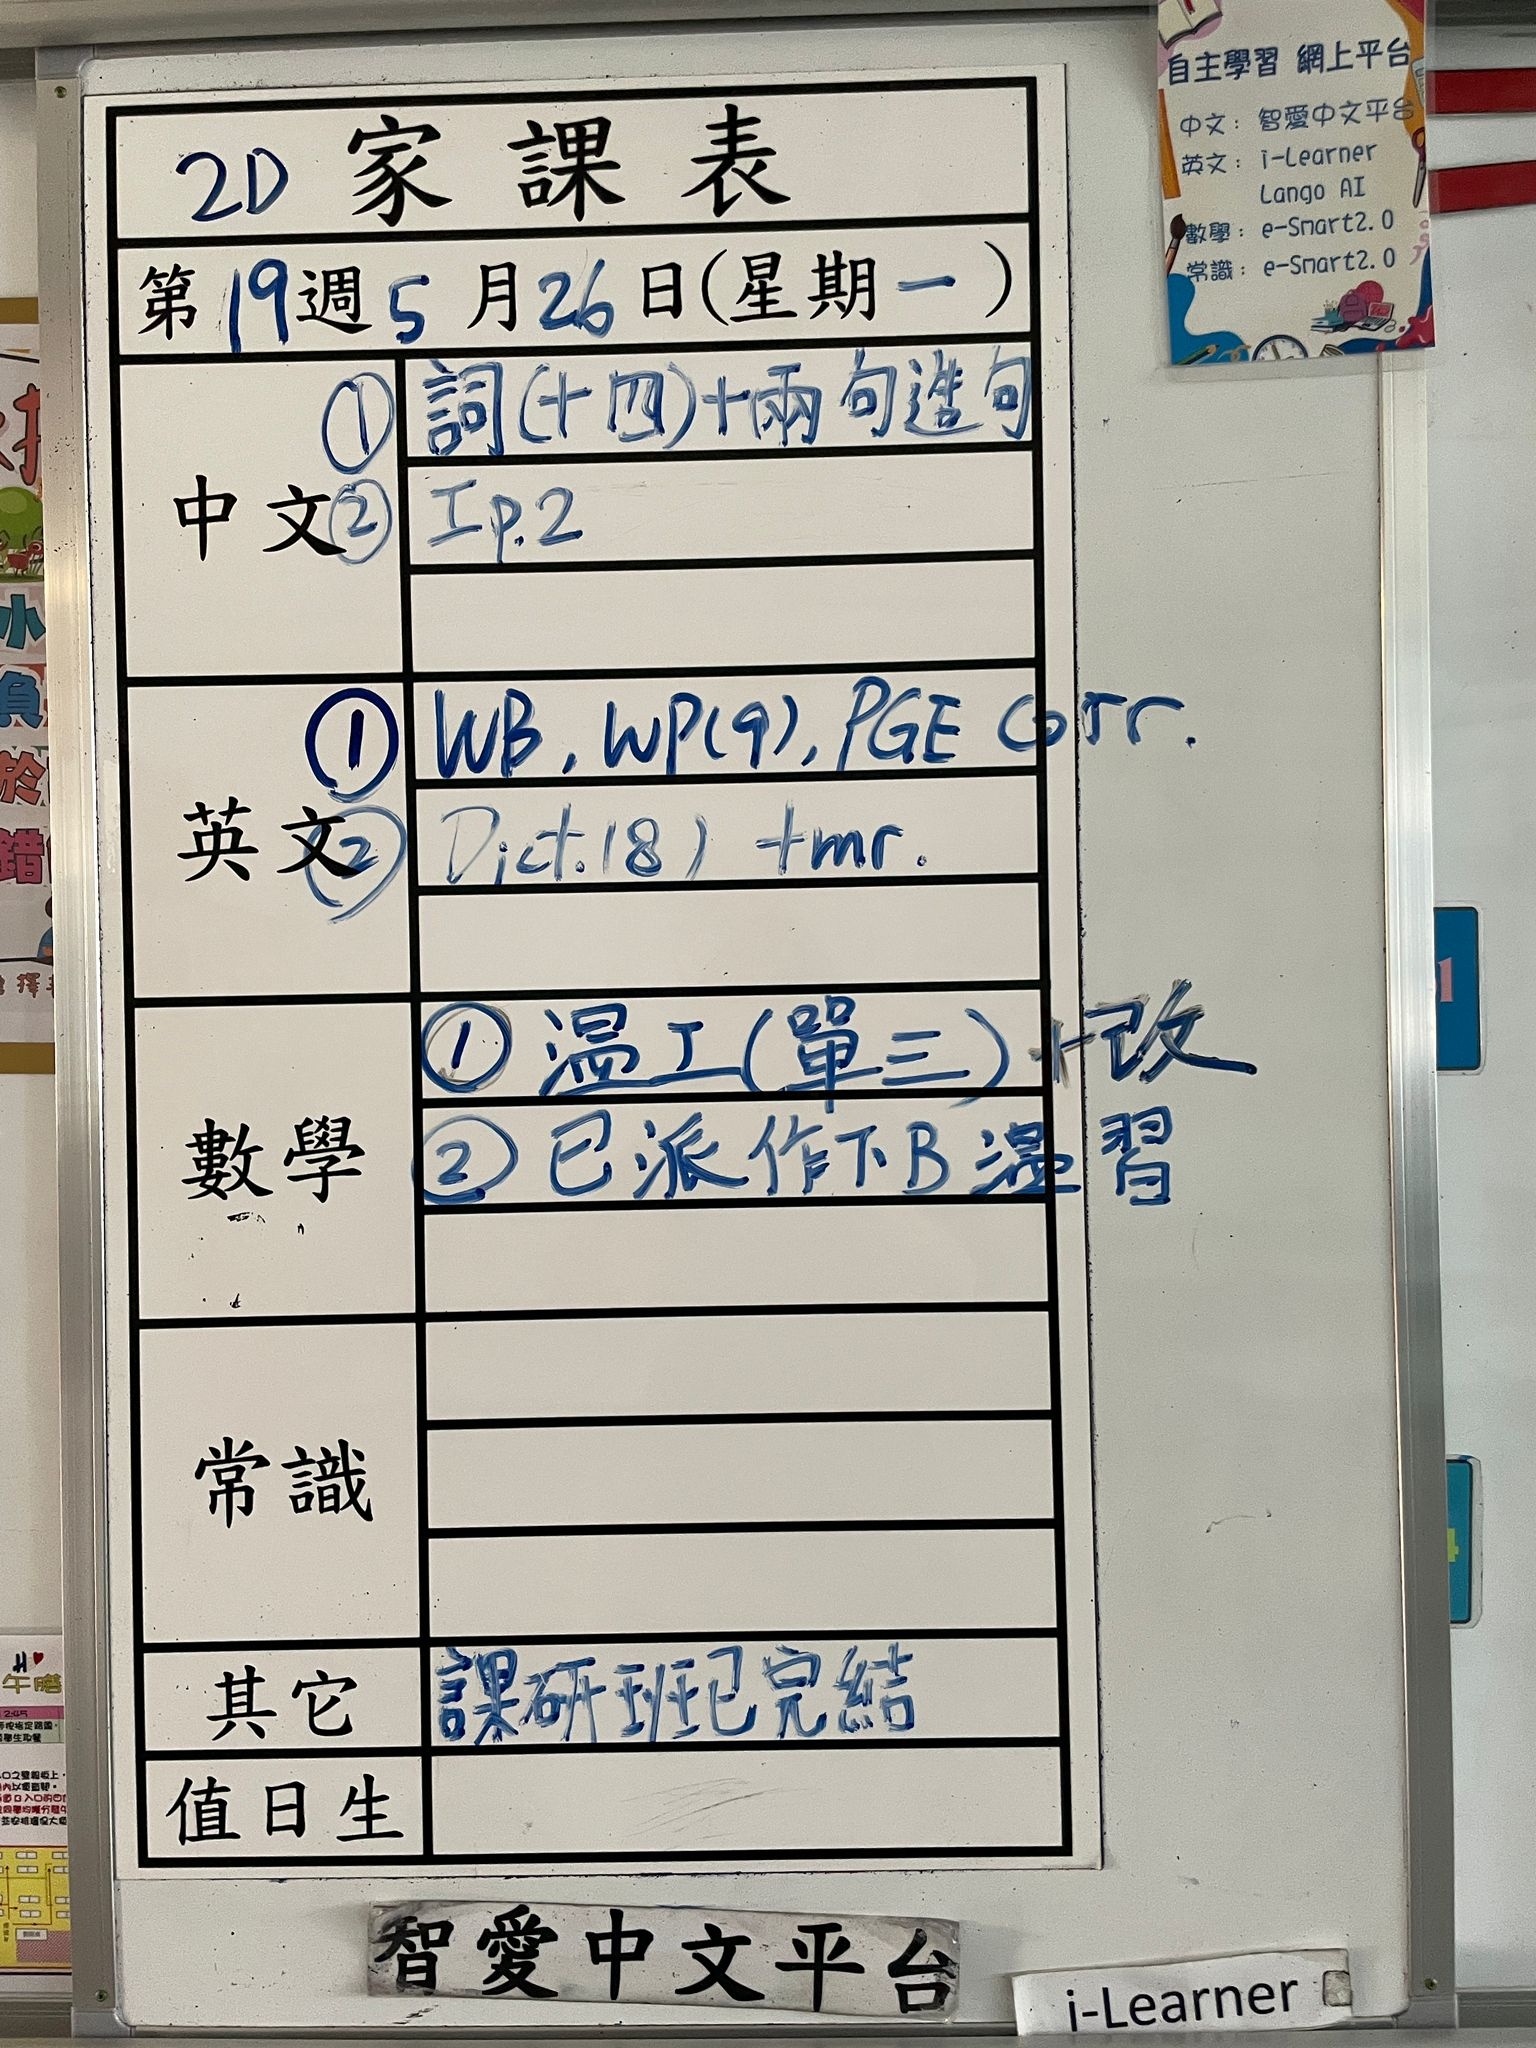 2D 家課表
第19週5月26日(星期一)
中文
① 詞(十四)+兩句造句
② 工p.2
英文
① WB, WP(9), PGE Corr.
② Dict.(8) tmr.
數學
① 温工(單三)+改
② 已派作下B温習
常識
其它
課研班已完結
值日生
智愛中文平台
i-Learner
自主學習 網上平台
中文: 智愛中文平台
英文: i-Learner
Lango AI
數學: e-Smart2.0
常識: e-Smart2.0
小
負
於
錯
擇
午膳
2:45